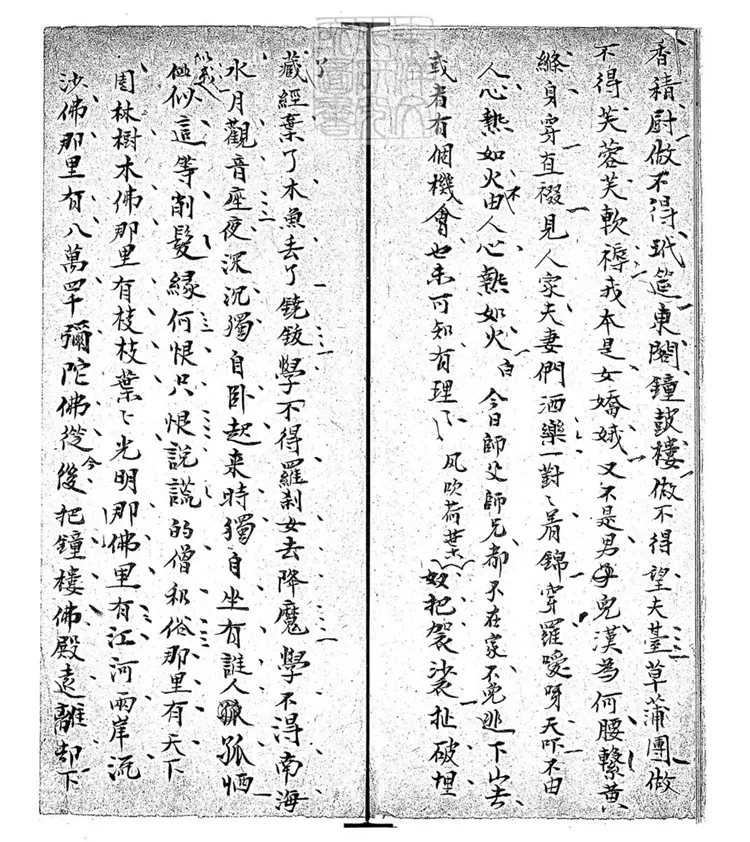 香積厨做不得玳筵東閣鐘鼓樓做不得望夫䑓草蒲團做
不得芙蓉芙軟褥我本是女嬌娥又不是男子兒漢為何腰繫黃
縧身穿直裰見人家夫妻們洒樂一對〻着錦穿羅噯呀天吓不由
人心熱如火由不人心熱如火 白 今日師父師兄都不在家不免逃下山去
或者有個機會也未可知有理〻 風吹荷葉 奴把袈裟扯破埋
藏經葉了木魚去了鐃鈸學不得羅剎女去降魔學不得南海
水月觀音座夜深沉獨自卧起来時獨自坐有誰人孤恓
似這等削髮緣何恨只恨說謊的僧和俗那里有天下
園林樹木佛那里有枝枝葉〻光明那佛里有江河兩岸流
沙佛那里有八萬四千彌陀佛從今後把鐘樓佛殿遠離却下